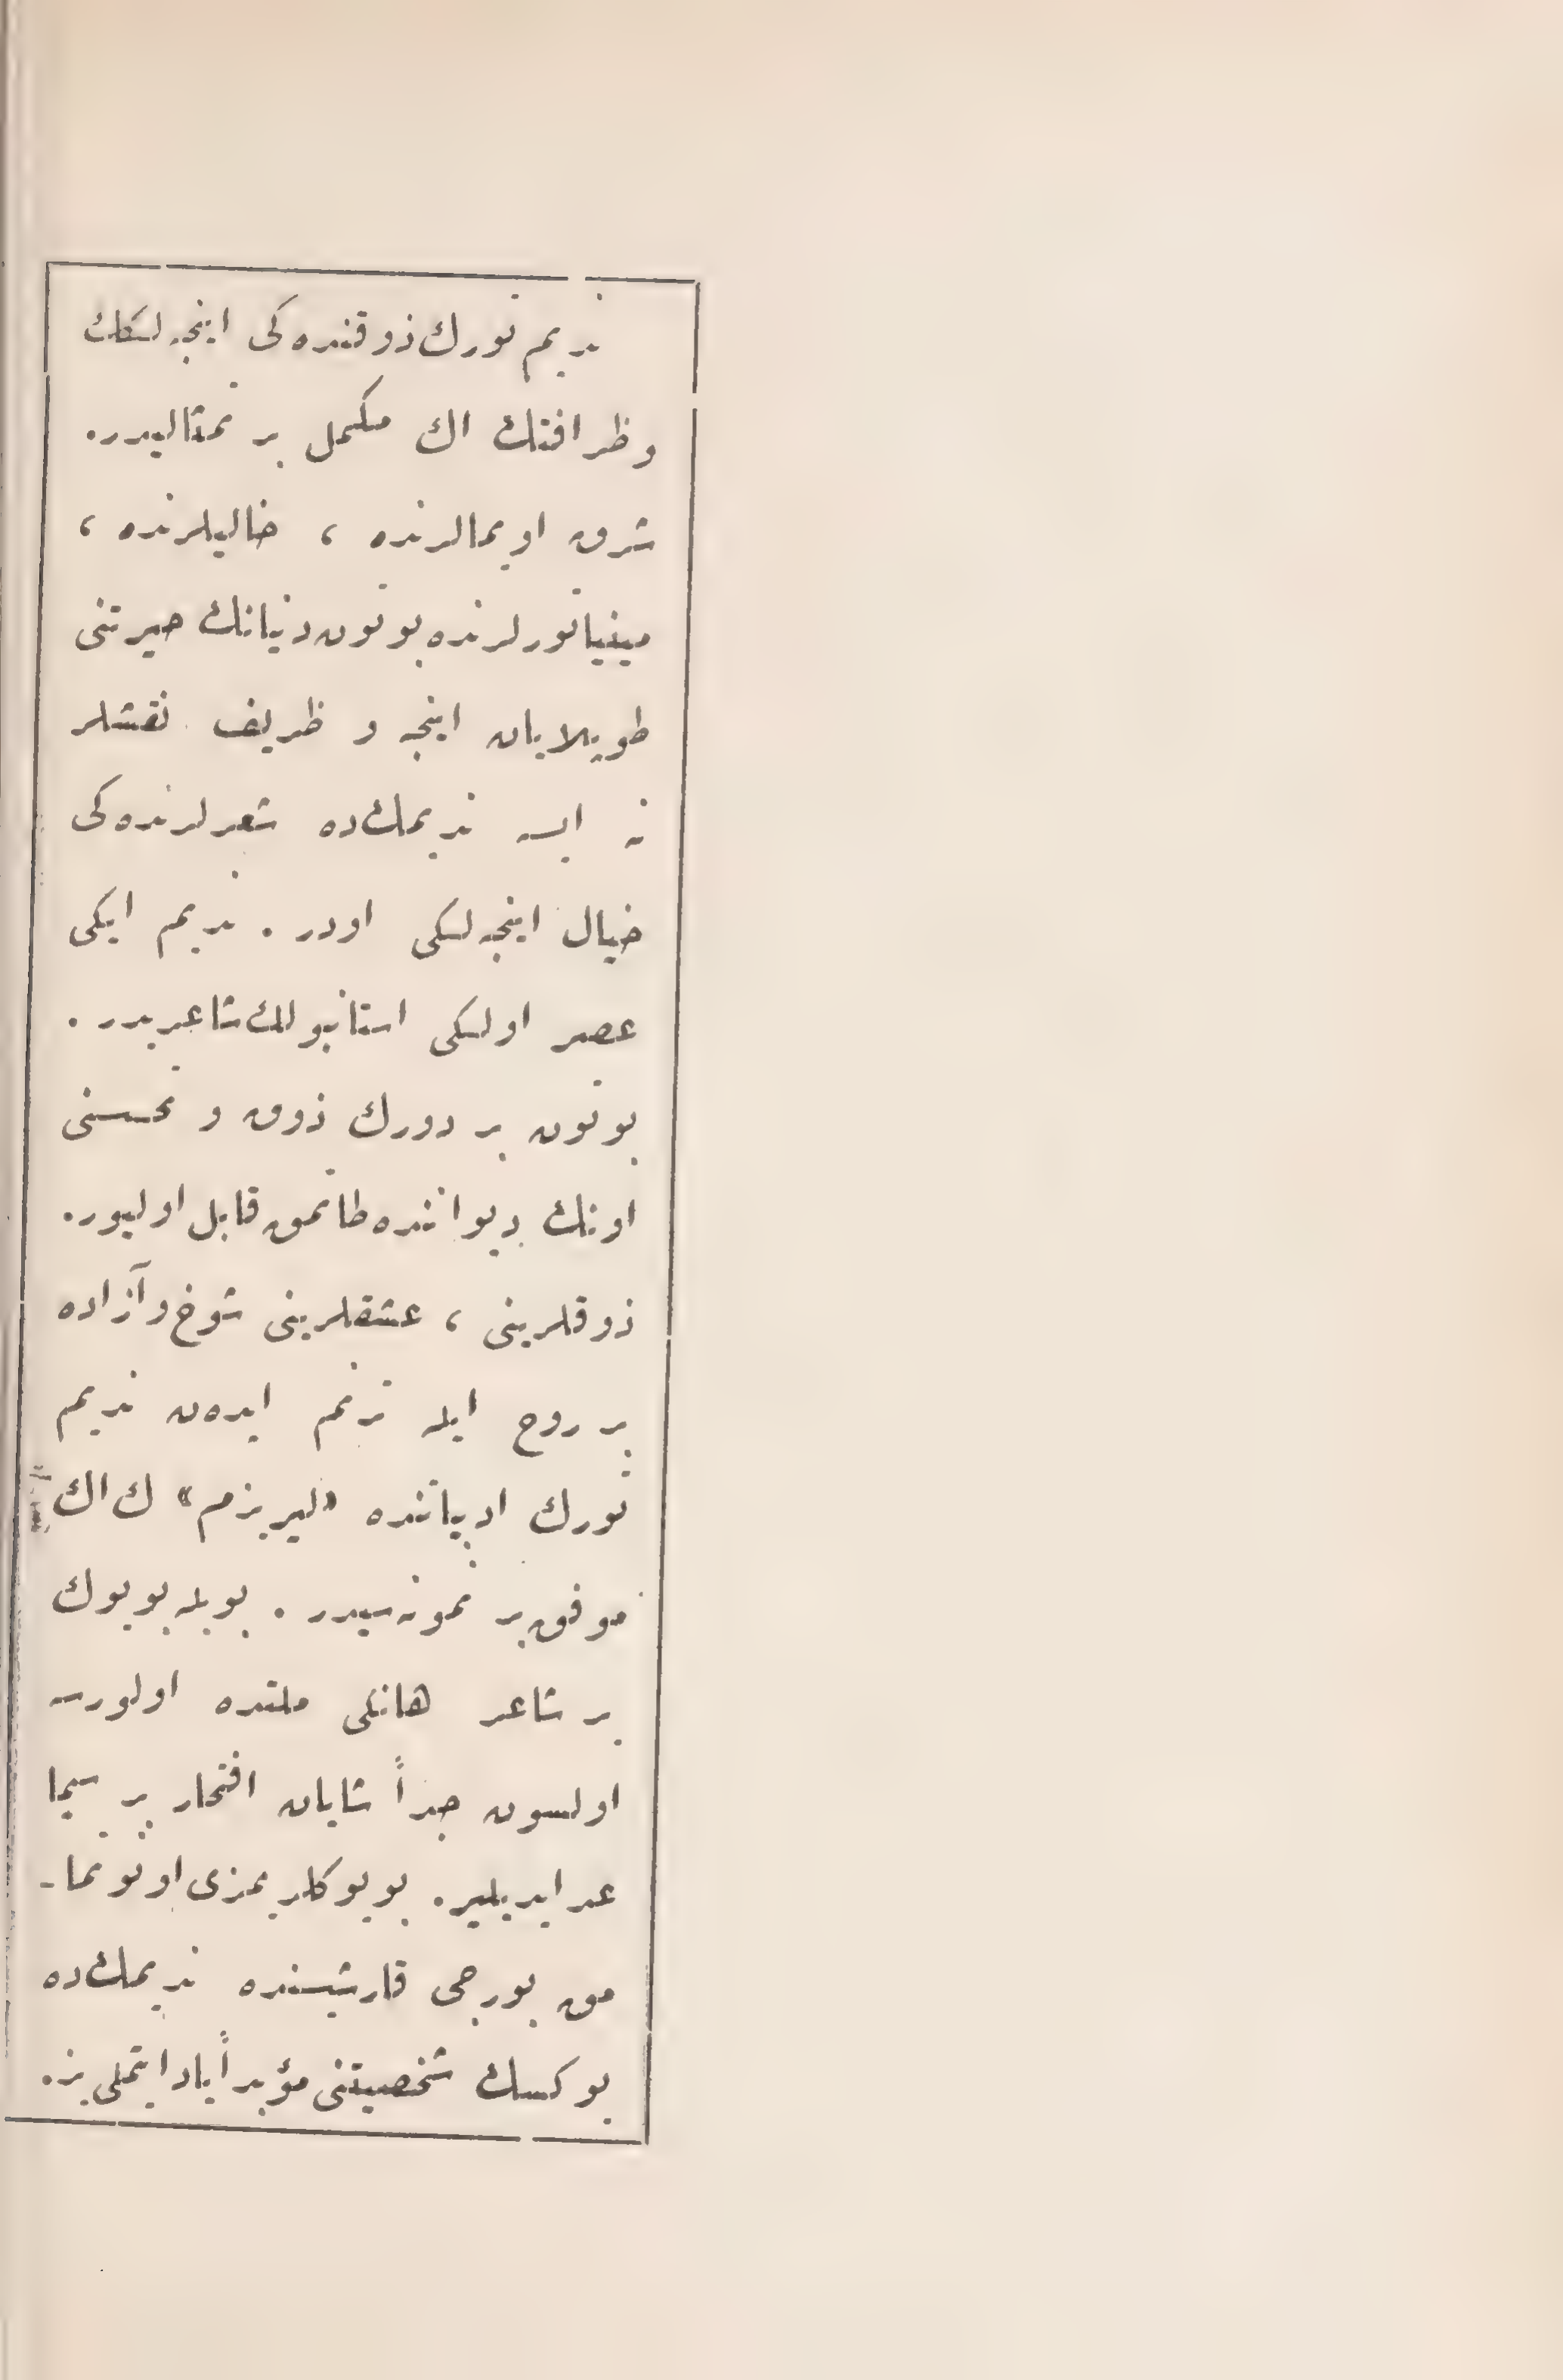 نديم تورك ذوقنده‌كى اينجه‌لكك
وظرافتك اك مكمل بر تمثاليدر.
شرق اويمالرنده ، خاليلرنده ،
مينياتورلرنده بوتون دنيانك حيرتنى
طوپلايان اينجه و ظريف نقشلر
نه ايسه نديمك‌ده شعرلرنده‌كى
خيال اينجه‌لكى اودر . نديم ايكى
عصر اولكى استانبولك شاعريدر .
بوتون بر دورك ذوق و تحسسنى
اونك ديواننده طاتمق قابل اوليور.
ذوقلرينى ، عشقلرينى شوخ وآزاده
بر روح ايله ترنم ايده‌ن نديم
تورك ادبياتنده «ليريزم» ك اك
موفق بر نمونه‌سيدر . بويله بويوك
بر شاعر هانكى ملتده اولورسه
اولسون جداً شايان افتخار بر سيما
عد ايديلير. بويوكلريمزى اونوتما-
مق بورجى قارشيسنده نديمك‌ده
يوكسك شخصيتنى مؤبداً ياد ايتملى‌يز.